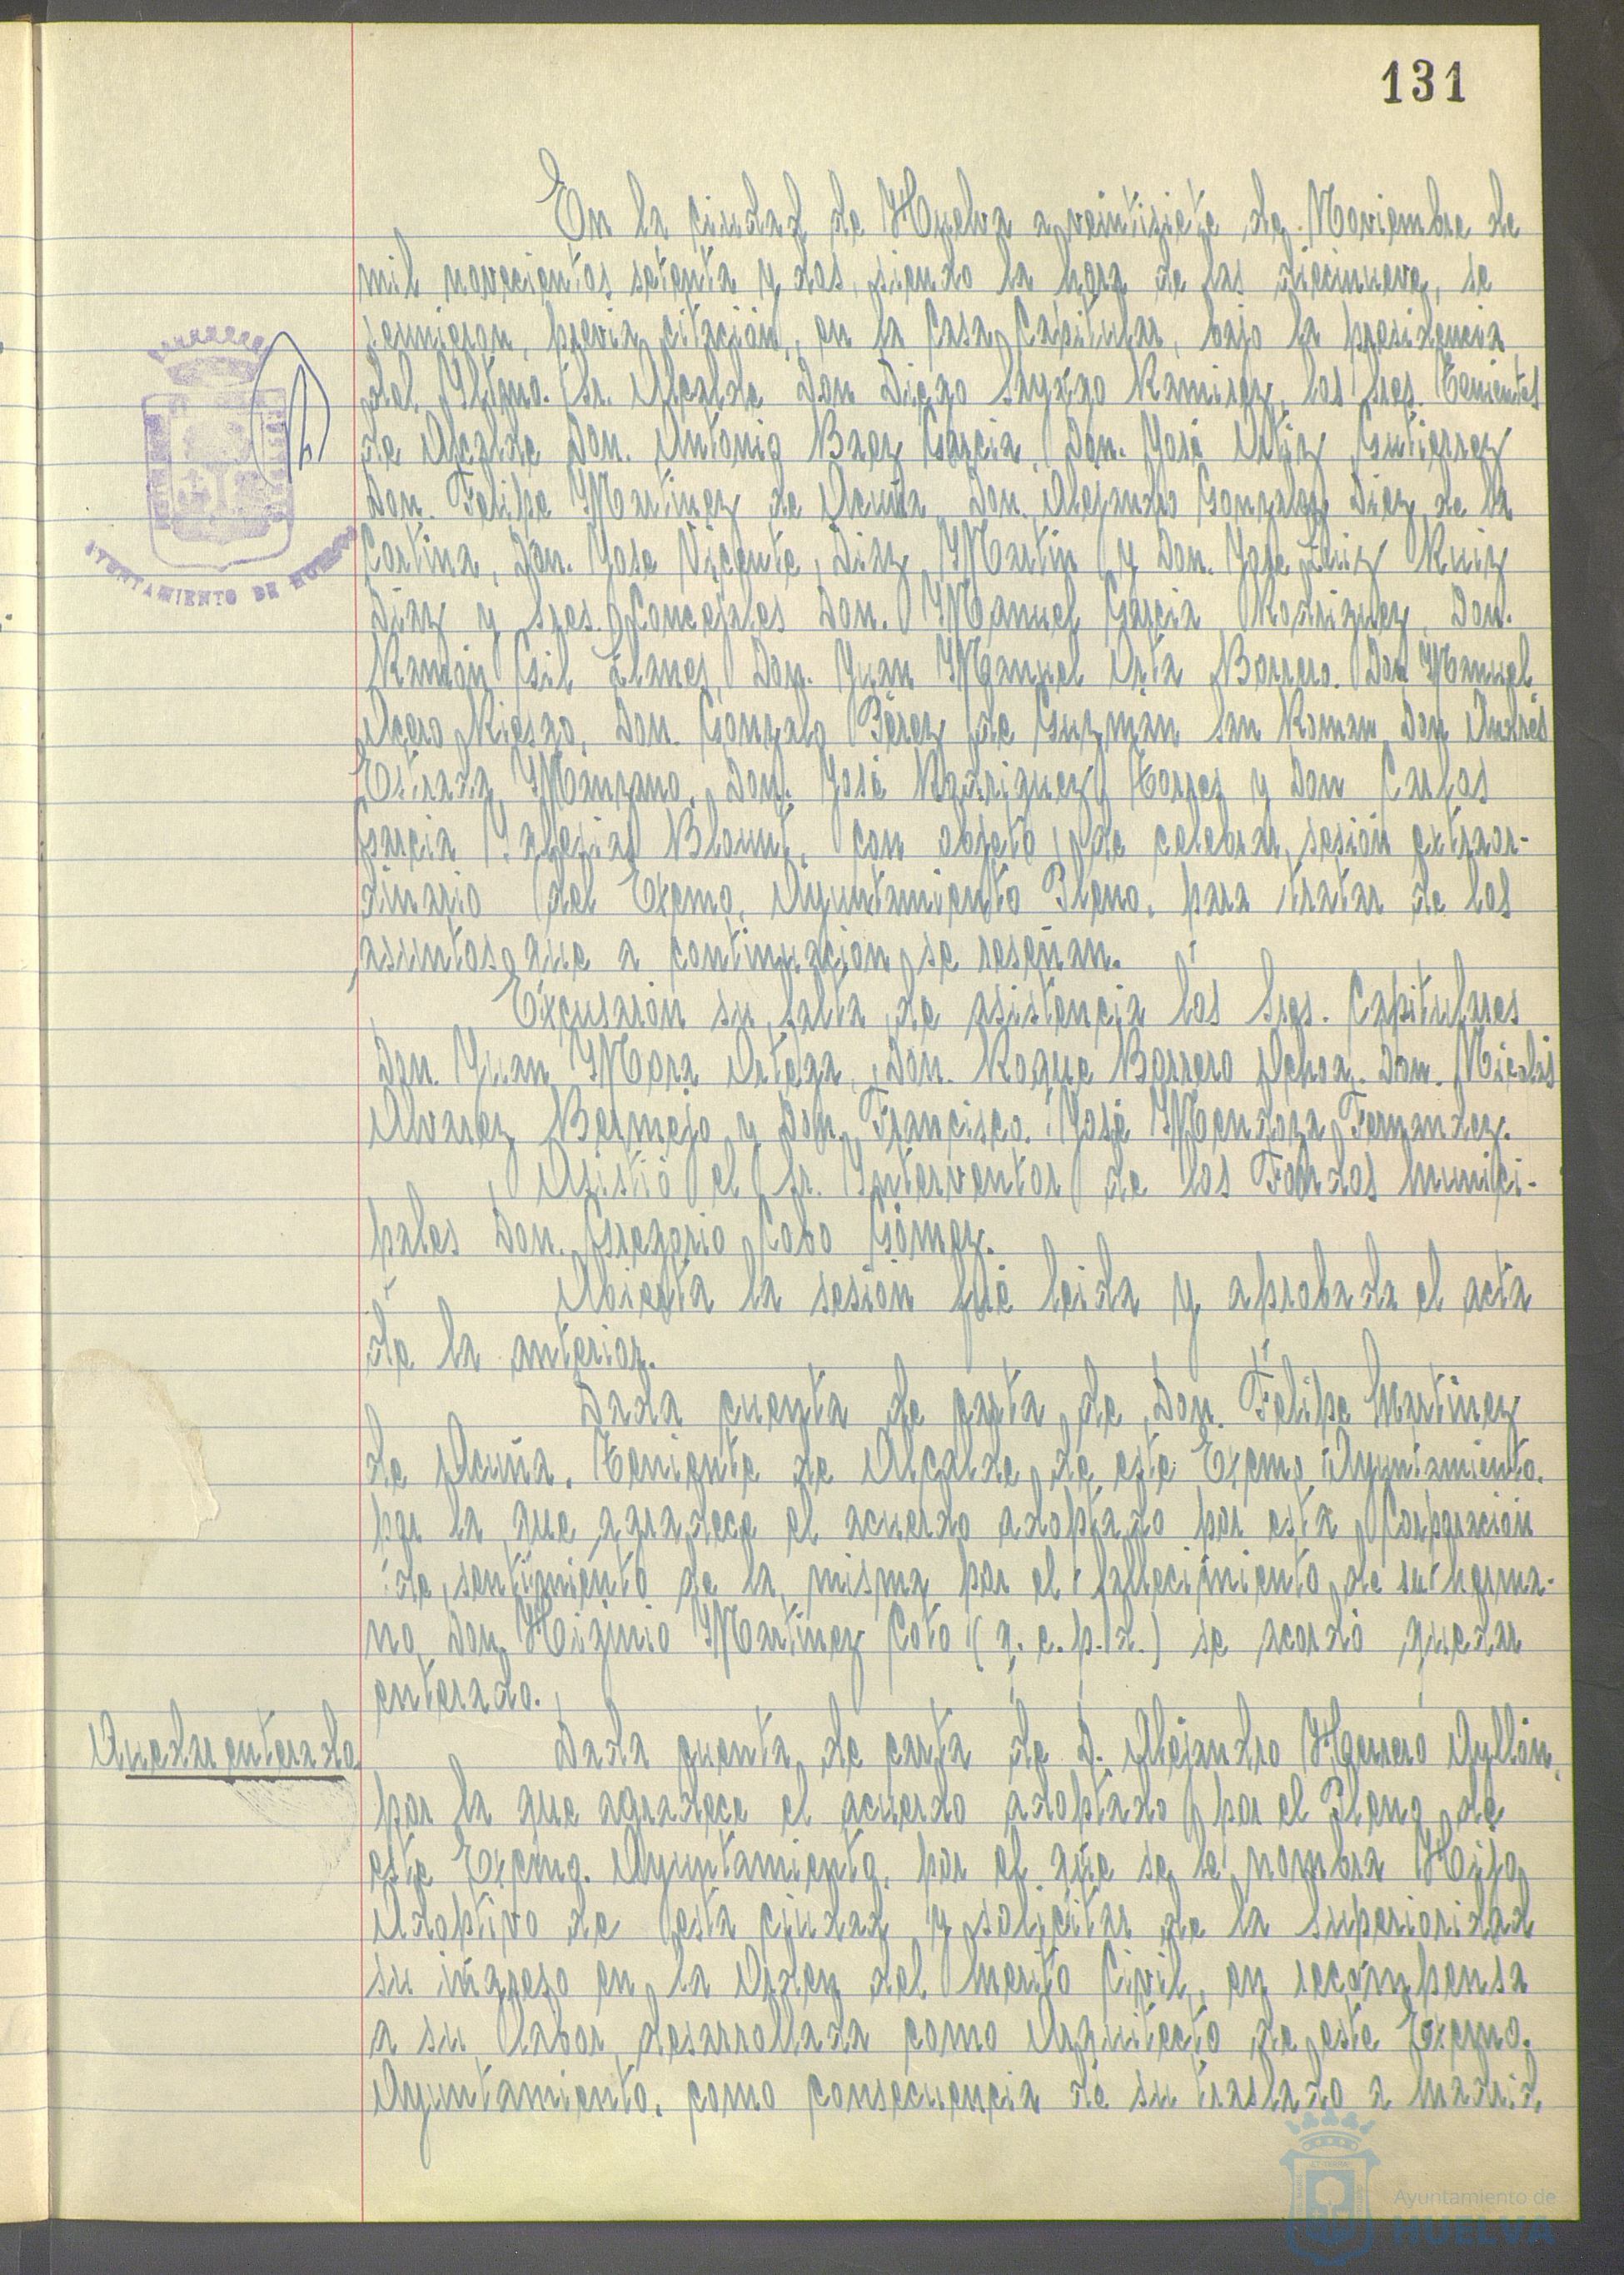 131
En la ciudad de Huelva a veintisiete de Noviembre de
mil novecientos setenta y dos, siendo la hora de las diecinueve, se
reunieron, previa citación, en la Casa Capitular, bajo la presidencia
del Iltmo. Sr. Alcalde Don Diego Sayago Ramirez, los Sres. Tenientes
de Alcalde Don. Antonio Baez Garcia, Don. José Ortiz Gutierrez
Don. Felipe Martinez de Acuña, Don. Alejandro Gonzalez Diez de la
Cortina, Don. Jose Vicente Diaz Martin y Don. Jose Luiz Ruiz
Diaz y Sres. Concejales Don. Manuel Garcia Rodriguez, Don.
Ramón Gil Llanes, Don. Juan Manuel Orta Borrero. Don Manuel
Acero Riesgo, Don. Gonzalo Pérez de Guzmán San Roman, Don Andrés
Estrada Manzano, Don. José Rodriguez Torres y Don Carlos
Garcia Ybleias Blount, con objeto de celebrar sesión extraor-
dinario del Excmo. Ayuntamiento Pleno, para tratar de los
asuntos que a continuación se reseñan.
Excusaron su falta de asistencia los Sres. Capitulares
Don. Juan Mora Ortega, Don. Roque Borrero Ochoa. Don. Nicolás
Alvarez Bermejo y Don. Francisco José Mendoza Fernandez.
Asistió el Sr. Interventor de los Fondos Munici-
pales Don. Gregorio Cobo Gómez.
Abierta la sesión fué leida y aprobada el acta
de la anterior.
Dada cuenta de carta de Don. Felipe Martinez
de Acuña, Teniente de Alcalde de este Excmo Ayuntamiento.
por la que agradece el acuerdo adoptado por esta Corporación
de sentimiento de la misma por el fallecimiento de su herma-
no Don. Higinio Martinez Coto (q. e. p. d.) se acordó quedar
enterado.
Quedar enterado.
Dada cuenta de carta de D. Alejandro Herrero Ayllón,
por la que agradece el acuerdo adoptado por el Pleno de
este Excmo. Ayuntamiento, por el que se le nombra Hijo
Adoptivo de esta ciudad y solicitar de la Superioridad
su ingreso en la Orden del Merito Civil, en recompensa
a su labor desarrollada como Arquitecto de este Excmo.
Ayuntamiento, como consecuencia de su traslado a Madrid,
AYUNTAMIENTO DE HUELVA
Ayuntamiento de
HUELVA